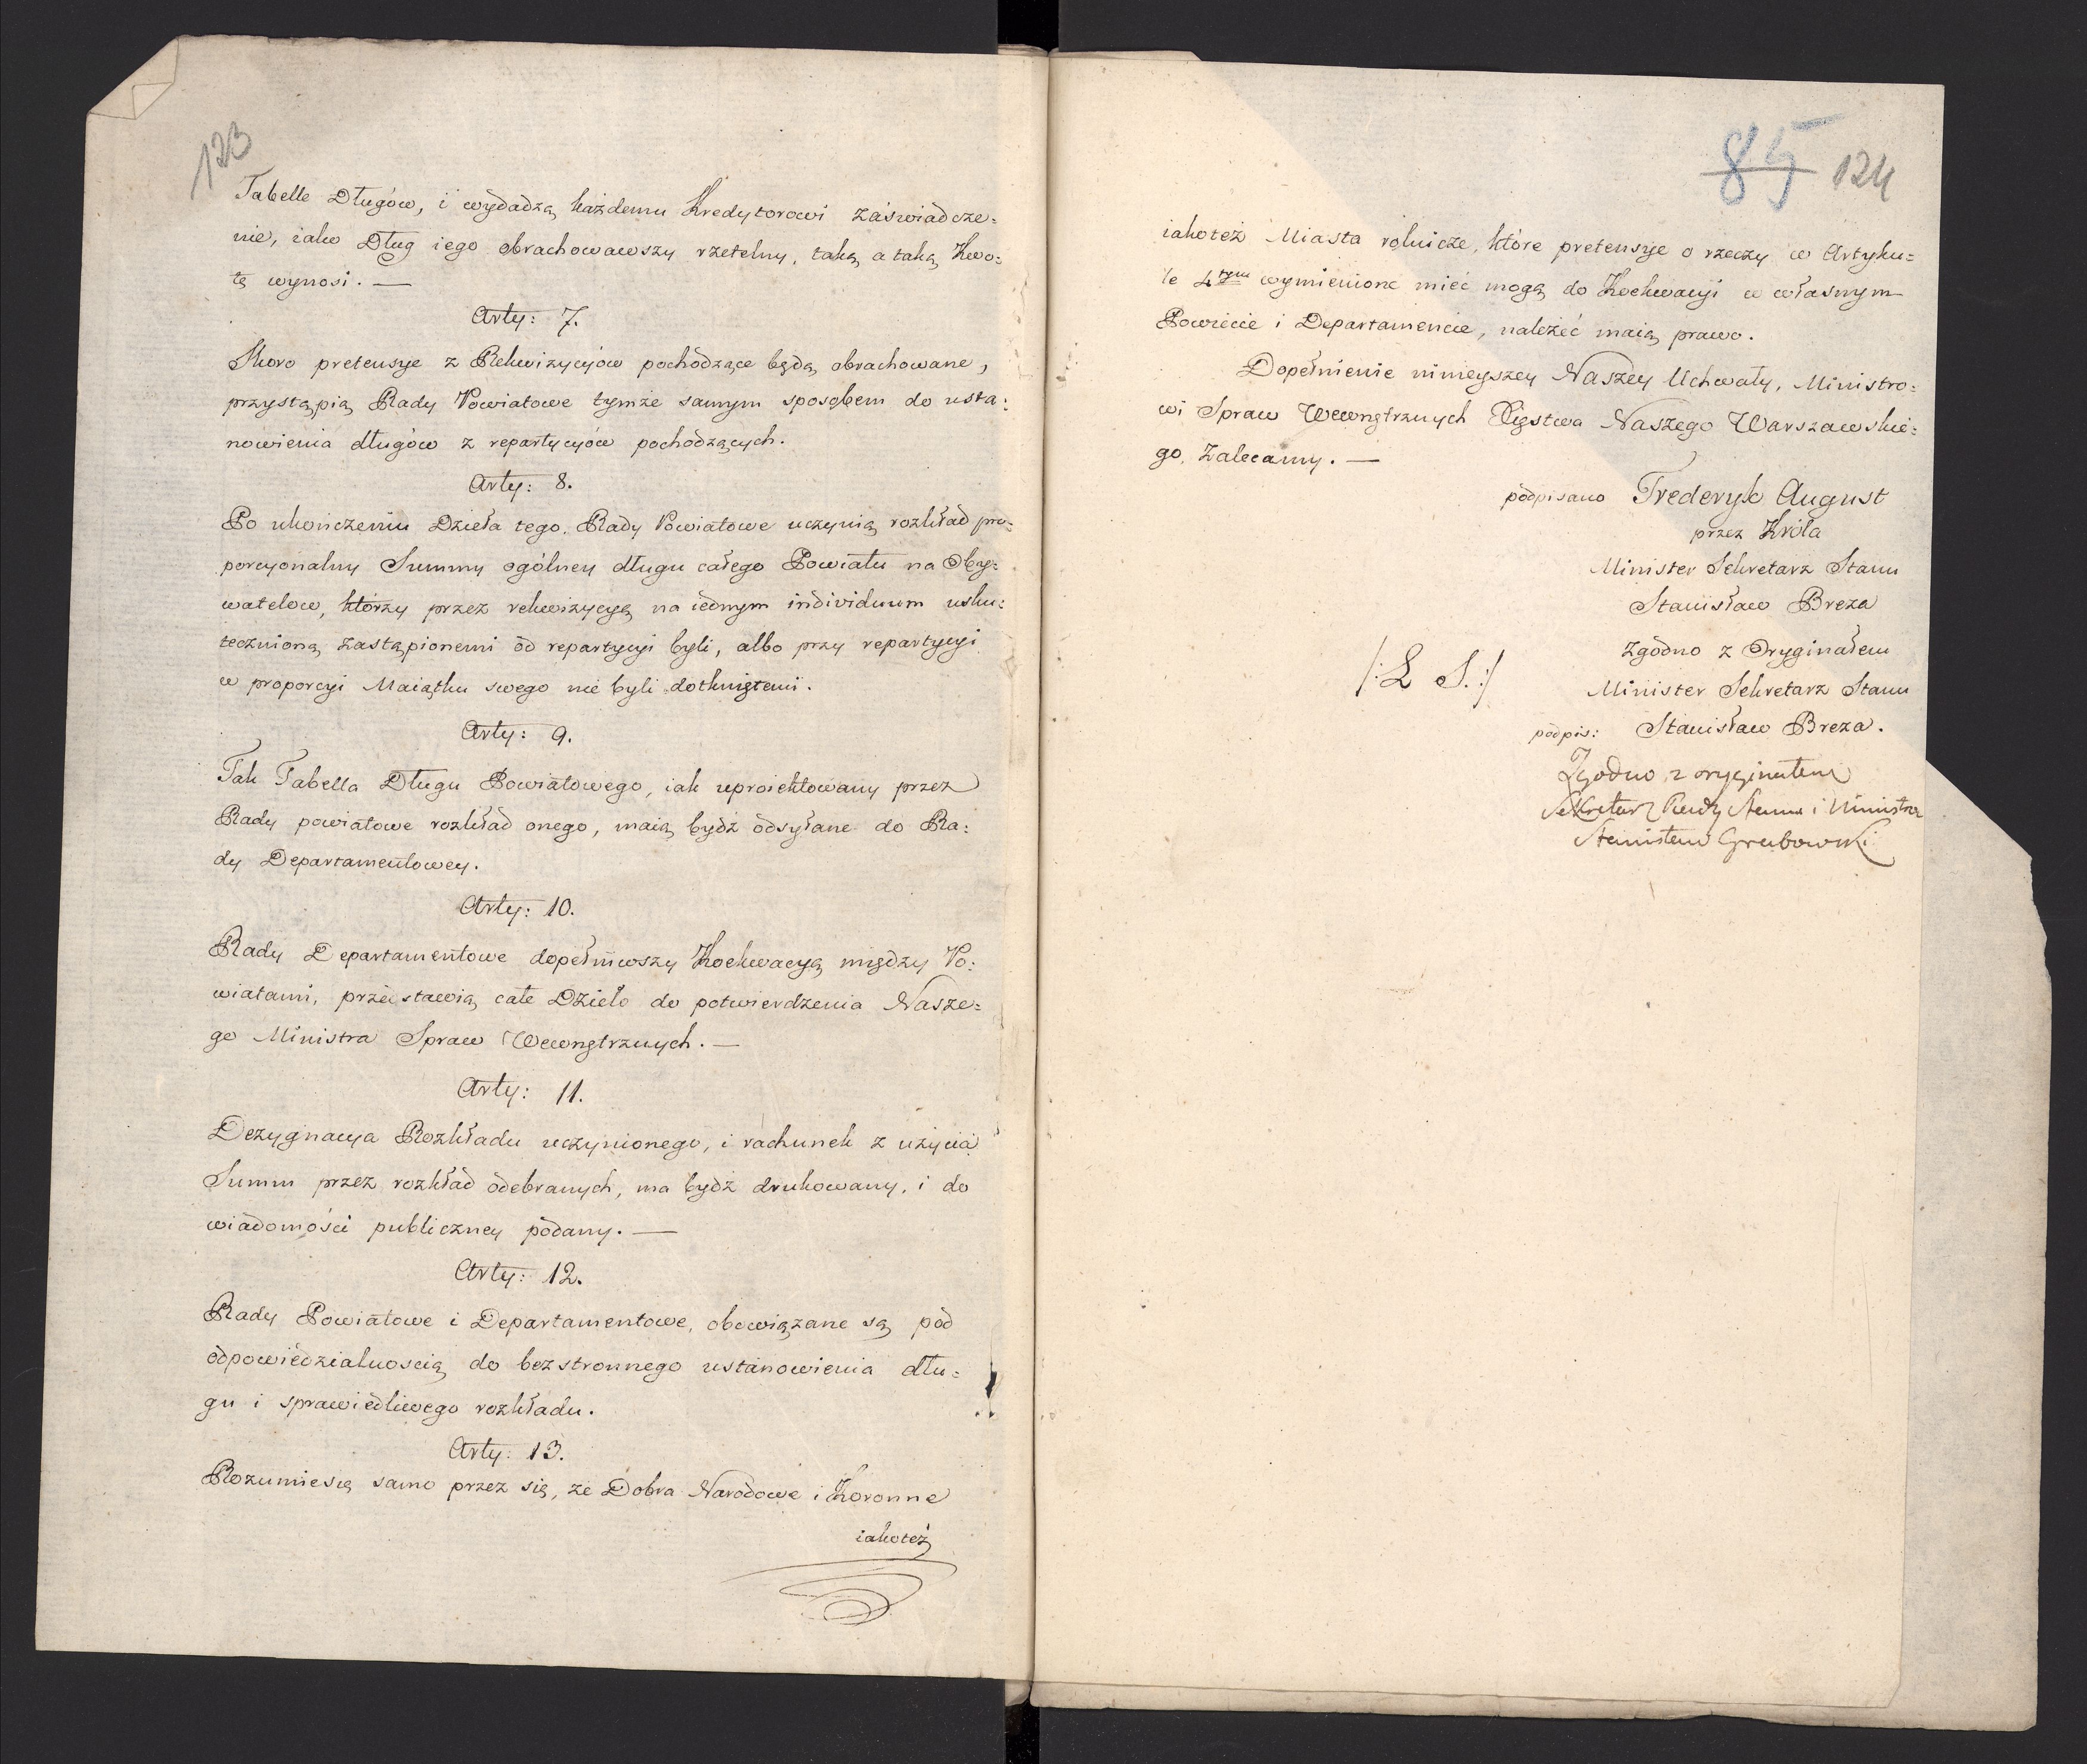 123
Tabelle Długów, i wydadzą każdemu Kredytorowi zaswiadcze=
nie, iako Dług iego obrachowawszy rzetelny, taką a taką Kwo=
tę wynosi. —
Arty: 7.
Skoro pretensye z Rekwizycyów pochodzące będą obrachowane,
przystąpią Rady Powiatowe tymże samym sposobem do usta:
nowienia długów z repartycyów pochodzących.
Arty: 8.
Po ukończeniu Dzieła tego, Rady Powiatowe uczynią rozkład pro=
porcyonalny Summy ogólney długu całego Powiatu na Oby=
watelow, którzy przez rekwizycyą na iednym individuum usku:
tecznioną zastąpionemi od repartycyi byli, albo przy repartycyi
w proporcyi Maiątku swego nie byli dotkniętemi.
Arty: 9.
Tak Tabella Długu Powiatowego, iak uproiektowany przez
Rady powiatowe rozkład onego, maią bydź odsyłane do Ra:
dy Departamentowey.
Arty: 10.
Rady Departamentowe dopełniwszy Koekwacyą między Po:
wiatami, przedstawią całe Dzieło do potwierdzenia Nasze=
go Ministra Spraw Wewnętrznych. —
Arty: 11.
Dezygnacya Rozkładu uczynionego, i rachunek z użycia
Summ przez rozkład odebranych, ma bydź drukowany, i do
wiadomości publiczney podany. —
Arty: 12.
Rady Powiatowe i Departamentowe, obowiązane są pod
odpowiedzialnoscią do bezstronnego ustanowienia dłu=
gu i sprawiedliwego rozkładu.
Arty: 13.
Rozumiesię samo przez się, że Dobra Narodowe i Koronne
iakoteż
85 124
iakoteż Miasta rolnicze, które pretensye o rzeczy w Artyku=
le 4tym wymienione mieć mogą do Koekwacyi w własnym
Powiecie i Departamencie, należeć maią prawo.
Dopełnienie ninieyszey Naszey Uchwały, Ministro=
wi Spraw Wewnętrznych Xięstwa Naszego Warszawskie=
go, Zalecamy. —
podpisano Frederyk August
przez Króla
Minister Sekretarz Stanu
Stanisław Breza
Zgodno z Oryginałem
/: L S. :/
Minister Sekretarz Stanu
podpis: Stanisław Breza.
Zgodno z oryginałem
Sekretarz Rady Stanu i Ministrów
Stanisław Grabowski